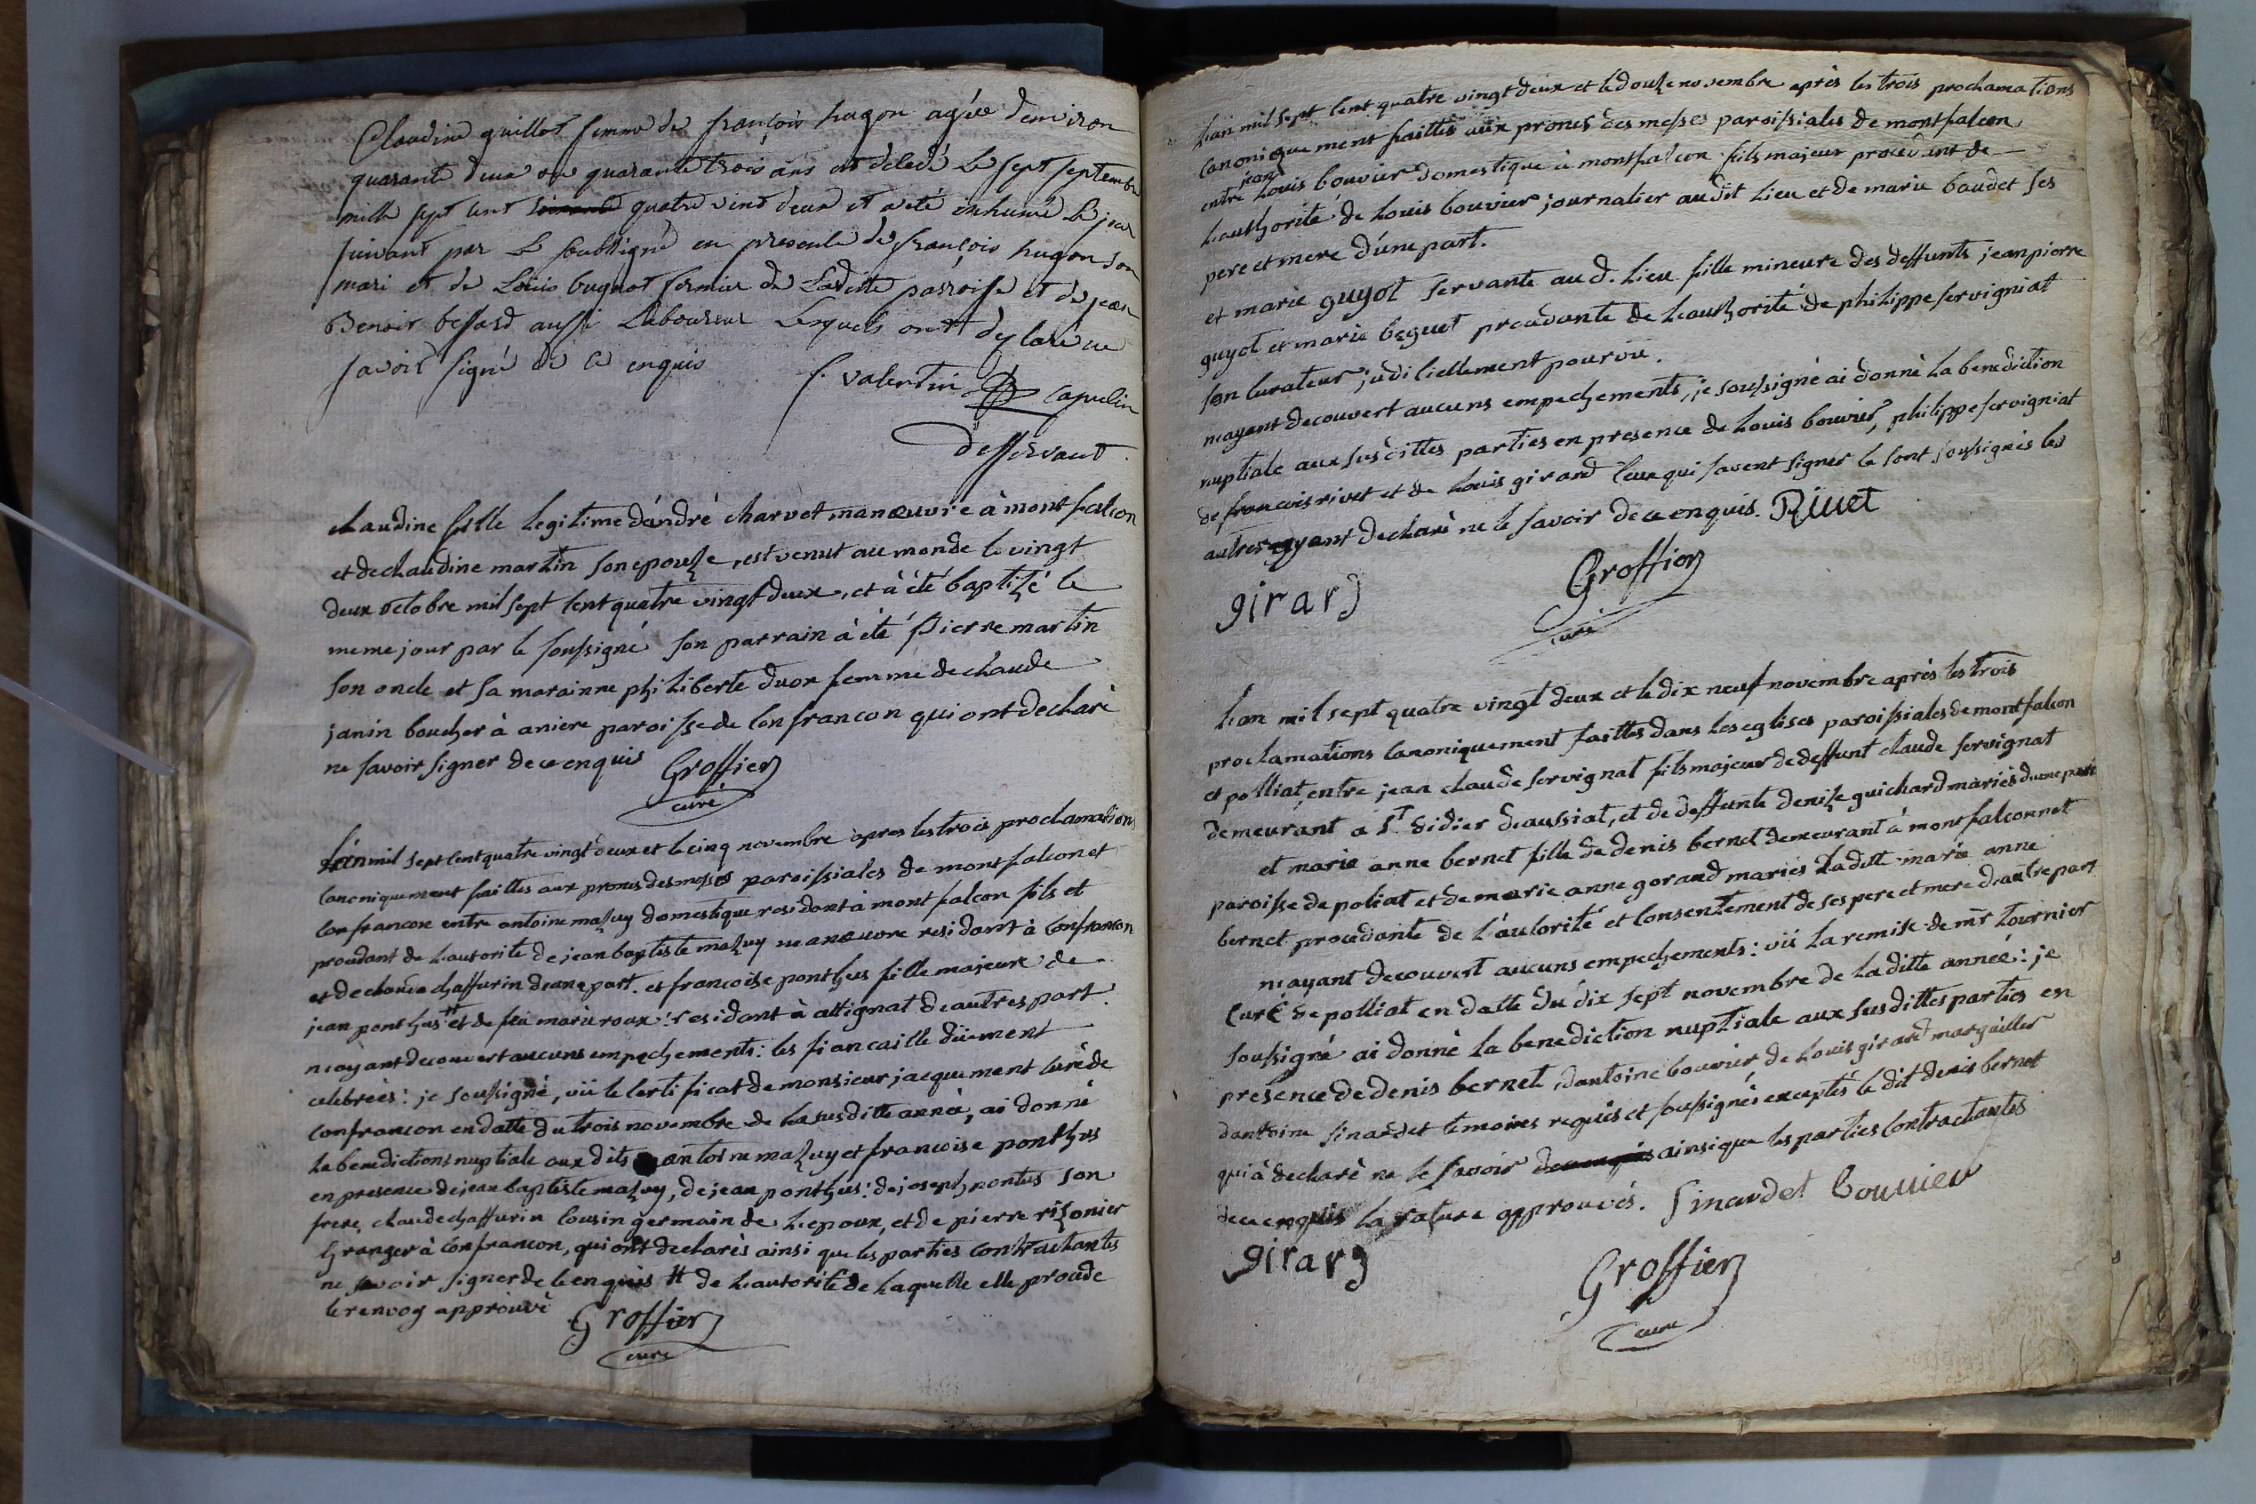 Claudine guillot femme de françois hugon agée denviron
quarante deux ou quarante trois ans est déledé Le sept septembre
mille sept cent soixante quatre vint deux et a été inhumé Le jour
suivant par Le soubsigné en presence de françois hugon son
mari et de Louis bugnot fermier de Ladite parroisse et de jean
Benoit bessard aussi Laboureur Lesquels ont dy claré ne
savoir signé de ce enquis f. valentin capucin
desservant
claudine fille legitime d'andré charvet manœuvre à montfalcon
et de claudine martin son epouse, est venut au monde le vingt
deux octobre mil sept cent quatre vingt deux, et à été baptizé le
meme jour par le soussigné son parrain à été pierre martin
son oncle et sa marainne philiberte duor femme de claude
janin boucher à aniere paroisse de confrancon qui ont declaré
ne savoir signer de ce enquis Groffier
curé
L'an mil sept cent quatre vingt deux et le cinq novembre après les trois proclamations
canoniquement faittes aux prones des messes paroissiales de montfalcon et
confrancon entre antoine mazuy domestique residant à montfalcon fils et
procedant de l'autorité de jean baptiste mazuy manœuvre residant à confrancon
et de claudia chaffurin d'une part. et francoise ponthus fille majeure de
jean ponthus # et de feu marie roux: residant à attignat de autres part.
n'ayant decouvert aucuns empechements: les fiancaille düement
celebrées: je soussigné, vü le certificat de monsieur jacquement curé de
confrancon en datte du trois novembre de la susditte année, ai donné
la benediction nuptiale aux dits antoine mazuy et francoise ponthus
en presence de jean baptiste mazuy, de jean ponthus: de joseph pontus son
frere, claude chaffurin cousin germain de l'epoux, et de pierre rizonier
Granger à confrancon, qui ont declarés ainsi que les parties contractantes
ne savoir signer de ce enquis # de l'autorité de laquelle elle procede
le renvoy approuvé Groffier
curé
L'an mil sept cent quatre vingt deux et le douze novembre après les trois proclamations
canoniquement faittes aux prones des messes paroissiales de montfalcon
jean
entre Louis bouvier domestique à montfalcon fils majeur procedant de
L'authorité de Louis bouvier journalier audit Lieu et de marie baudet ses
pere et mere d'une part.
et marie guyot servante au d. Lieu fille mineure des deffunts jean pierre
guyot et marie beguet procedante de L'authorité de philippe servigniat
son curateur judiciellement pourvu.
n'ayant decouvert aucuns empechements, je soussigné ai donné La benediction
nuptiale aux susdittes parties en presence de Louis bouvier, philippe servigniat
de francois rivet et de Louis girard ceux qui savent signer le sont soussignés les
autres ayant declaré ne le savoir de ce enquis. Rivet
girard Groffier
curé
L'an mil sept quatre vingt deux et le dix neuf novembre après les trois
proclamations canoniquement faittes dans les eglises paroissiales de montfalcon
et polliat, entre jean claude servignat fils majeur de deffunt claude servignat
demeurant a St. didier d'aussiat, et de deffunte denize guichard mariés d'une part
et marie anne bernet fille de denis bernet demeurant à montfalconnet
paroisse de poliat et de marie anne gorand mariés Laditte marie anne
bernet procedante de l'autorité et consentement de ses pere et mere d'autre part
n'ayant decouvert aucuns empechements: vü La remise de mr tournier
curé de polliat en datte du dix sept novembre de La ditte année: je
soussigné ai donné la benediction nuptiale aux susdittes parties en
presence de denis bernet, d'antoine bouvier, de Louis girard marguillier
d'antoine sinardet temoins requis et soussignés exceptés le dit denis bernet
qui à declaré ne le savoir de ce enquis ainsi que les parties contractantes
de ce enquis la rature approuvés. Sinardet bouvier
girard Groffier
curé